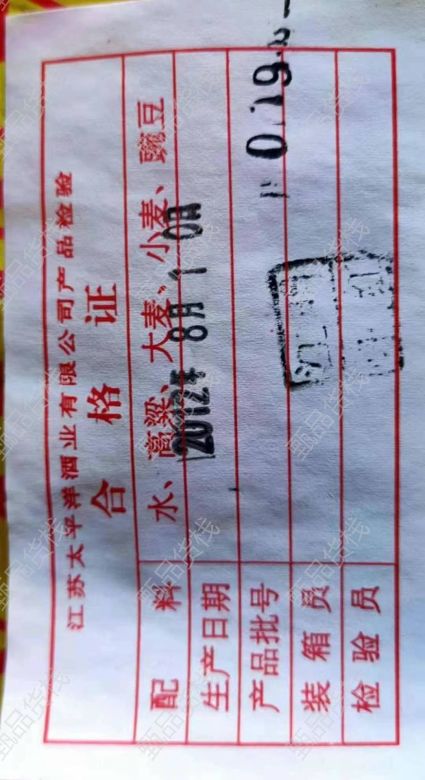 江苏太平洋酒业有限公司产品检验
合格证
配料 水、高粱、大麦、小麦、豌豆
生产日期 2012年8月10日
产品批号
装箱员
检验员
甄品货栈